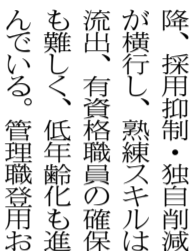 降、採用抑制・独自削減
が横行し、熟練スキルは
流出、有資格職員の確保
も難しく、低年齢化も進
んでいる。管理職登用お